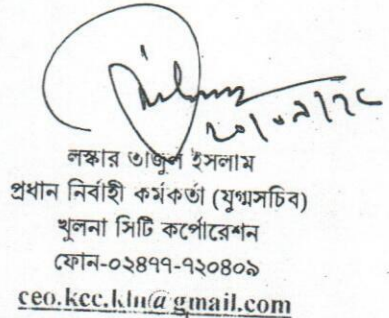 লস্কার তাজুল ইসলাম
প্রধান নির্বাহী কর্মকর্তা (যুগ্মসচিব)
খুলনা সিটি কর্পোরেশন
ফোন-০২৪৭৭-৭২০৪০৯
ceo.kcc.kln@gmail.com